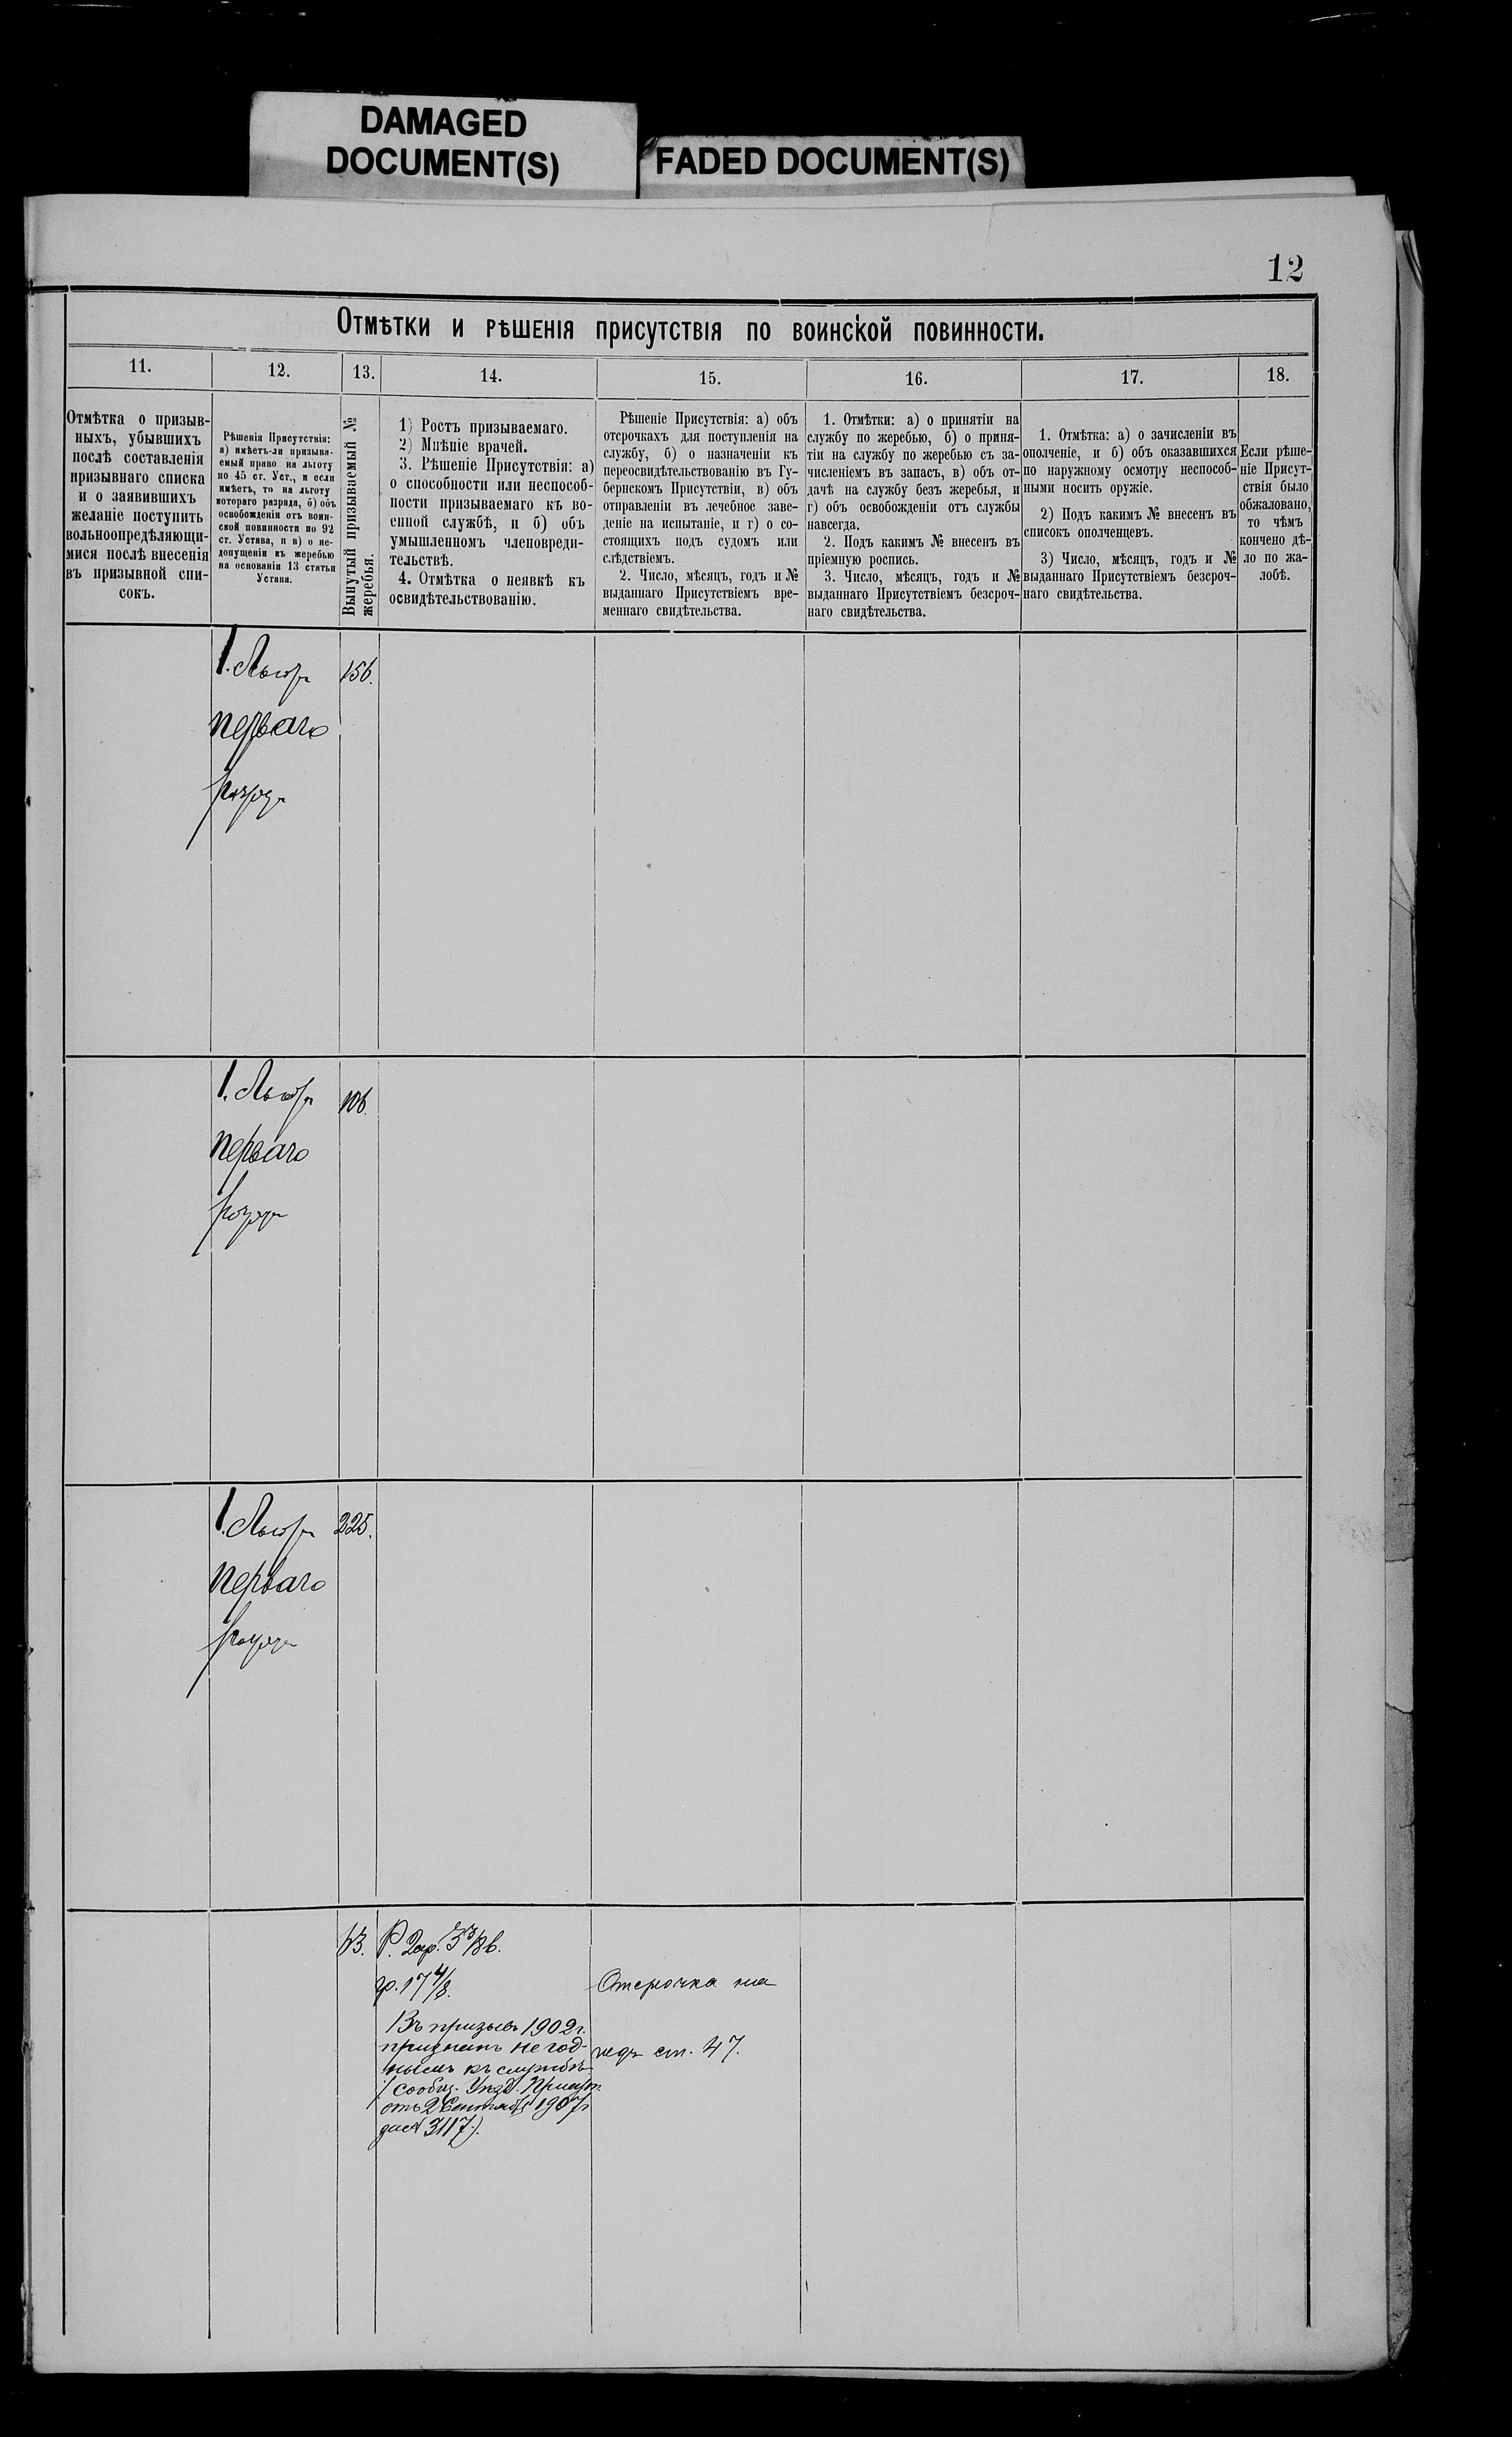 DAMAGED
DOCUMENT(S)
FADED DOCUMENT(S)
12
Отмѣтки и рѣшенія присутствія по воинской повинности.
11.
12.
13.
14.
15.
16.
17.
18.
Отмѣтка о призыв-
ныхъ, убывшихъ
послѣ составленія
призывнаго списка
и о заявившихъ
желаніе поступить
вольноопредѣляющи-
мися послѣ внесенія
въ призывной спи-
сокъ.
Рѣшенія Присутствія:
а) имѣетъ-ли призыва-
емый право на льготу
по 45 ст. Уст., и если
имѣетъ, то на льготу
котораго разряда, б) объ
освобожденіи отъ воин-
ской повинности по 92
ст. Устава, и в) о не-
допущеніи къ жеребью
на основаніи 13 статьи
Устава.
Вынутый призываемый №
жеребья.
1) Ростъ призываемаго.
2) Мнѣніе врачей.
3. Рѣшеніе Присутствія: а)
о способности или неспособ-
ности призываемаго къ во-
енной службѣ, и б) объ
умышленномъ членовреди-
тельствѣ.
4. Отмѣтка о неявкѣ къ
освидѣтельствованію.
Рѣшеніе Присутствія: а) объ
отсрочкахъ для поступленія на
службу, б) о назначеніи къ
переосвидѣтельствованію въ Гу-
бернскомъ Присутствіи, в) объ
отправленіи въ лечебное заве-
деніе на испытаніе, и г) о со-
стоящихъ подъ судомъ или
слѣдствіемъ.
2. Число, мѣсяцъ, годъ и №
выданнаго Присутствіемъ вре-
меннаго свидѣтельства.
1. Отмѣтки: а) о принятіи на
службу по жеребью, б) о приня-
тіи на службу по жеребью съ за-
численіемъ въ запасъ, в) объ от-
дачѣ на службу безъ жеребья, и
г) объ освобожденіи отъ службы
навсегда.
2. Подъ какимъ № внесенъ въ
пріемную роспись.
3. Число, мѣсяцъ, годъ и №
выданнаго Присутствіемъ безсроч-
наго свидѣтельства.
1. Отмѣтка: а) о зачисленіи въ
ополченіе, и б) объ оказавшихся
по наружному осмотру неспособ-
ными носить оружіе.
2) Подъ какимъ № внесенъ въ
списокъ ополченцевъ.
3) Число, мѣсяцъ, годъ и №
выданнаго Присутствіемъ безсроч-
наго свидѣтельства.
Если рѣше-
ніе Присут-
ствія было
обжаловано,
то чѣмъ
кончено дѣ-
ло по жа-
лобѣ.
1. Льгота 156.
перваго
разряда
1. Льгота 106.
перваго
разряда
1. Льгота 225.
перваго
разряда
Р. 2ар.
гр. 17 4/8.
Отсрочка на
Въ призывъ 1902 г.
признанъ негод-
нымъ къ службѣ
ст. 47.
(сообщ. Уѣзд. Присут.
отъ 2 Сентября 1907 г.
за № 3117).